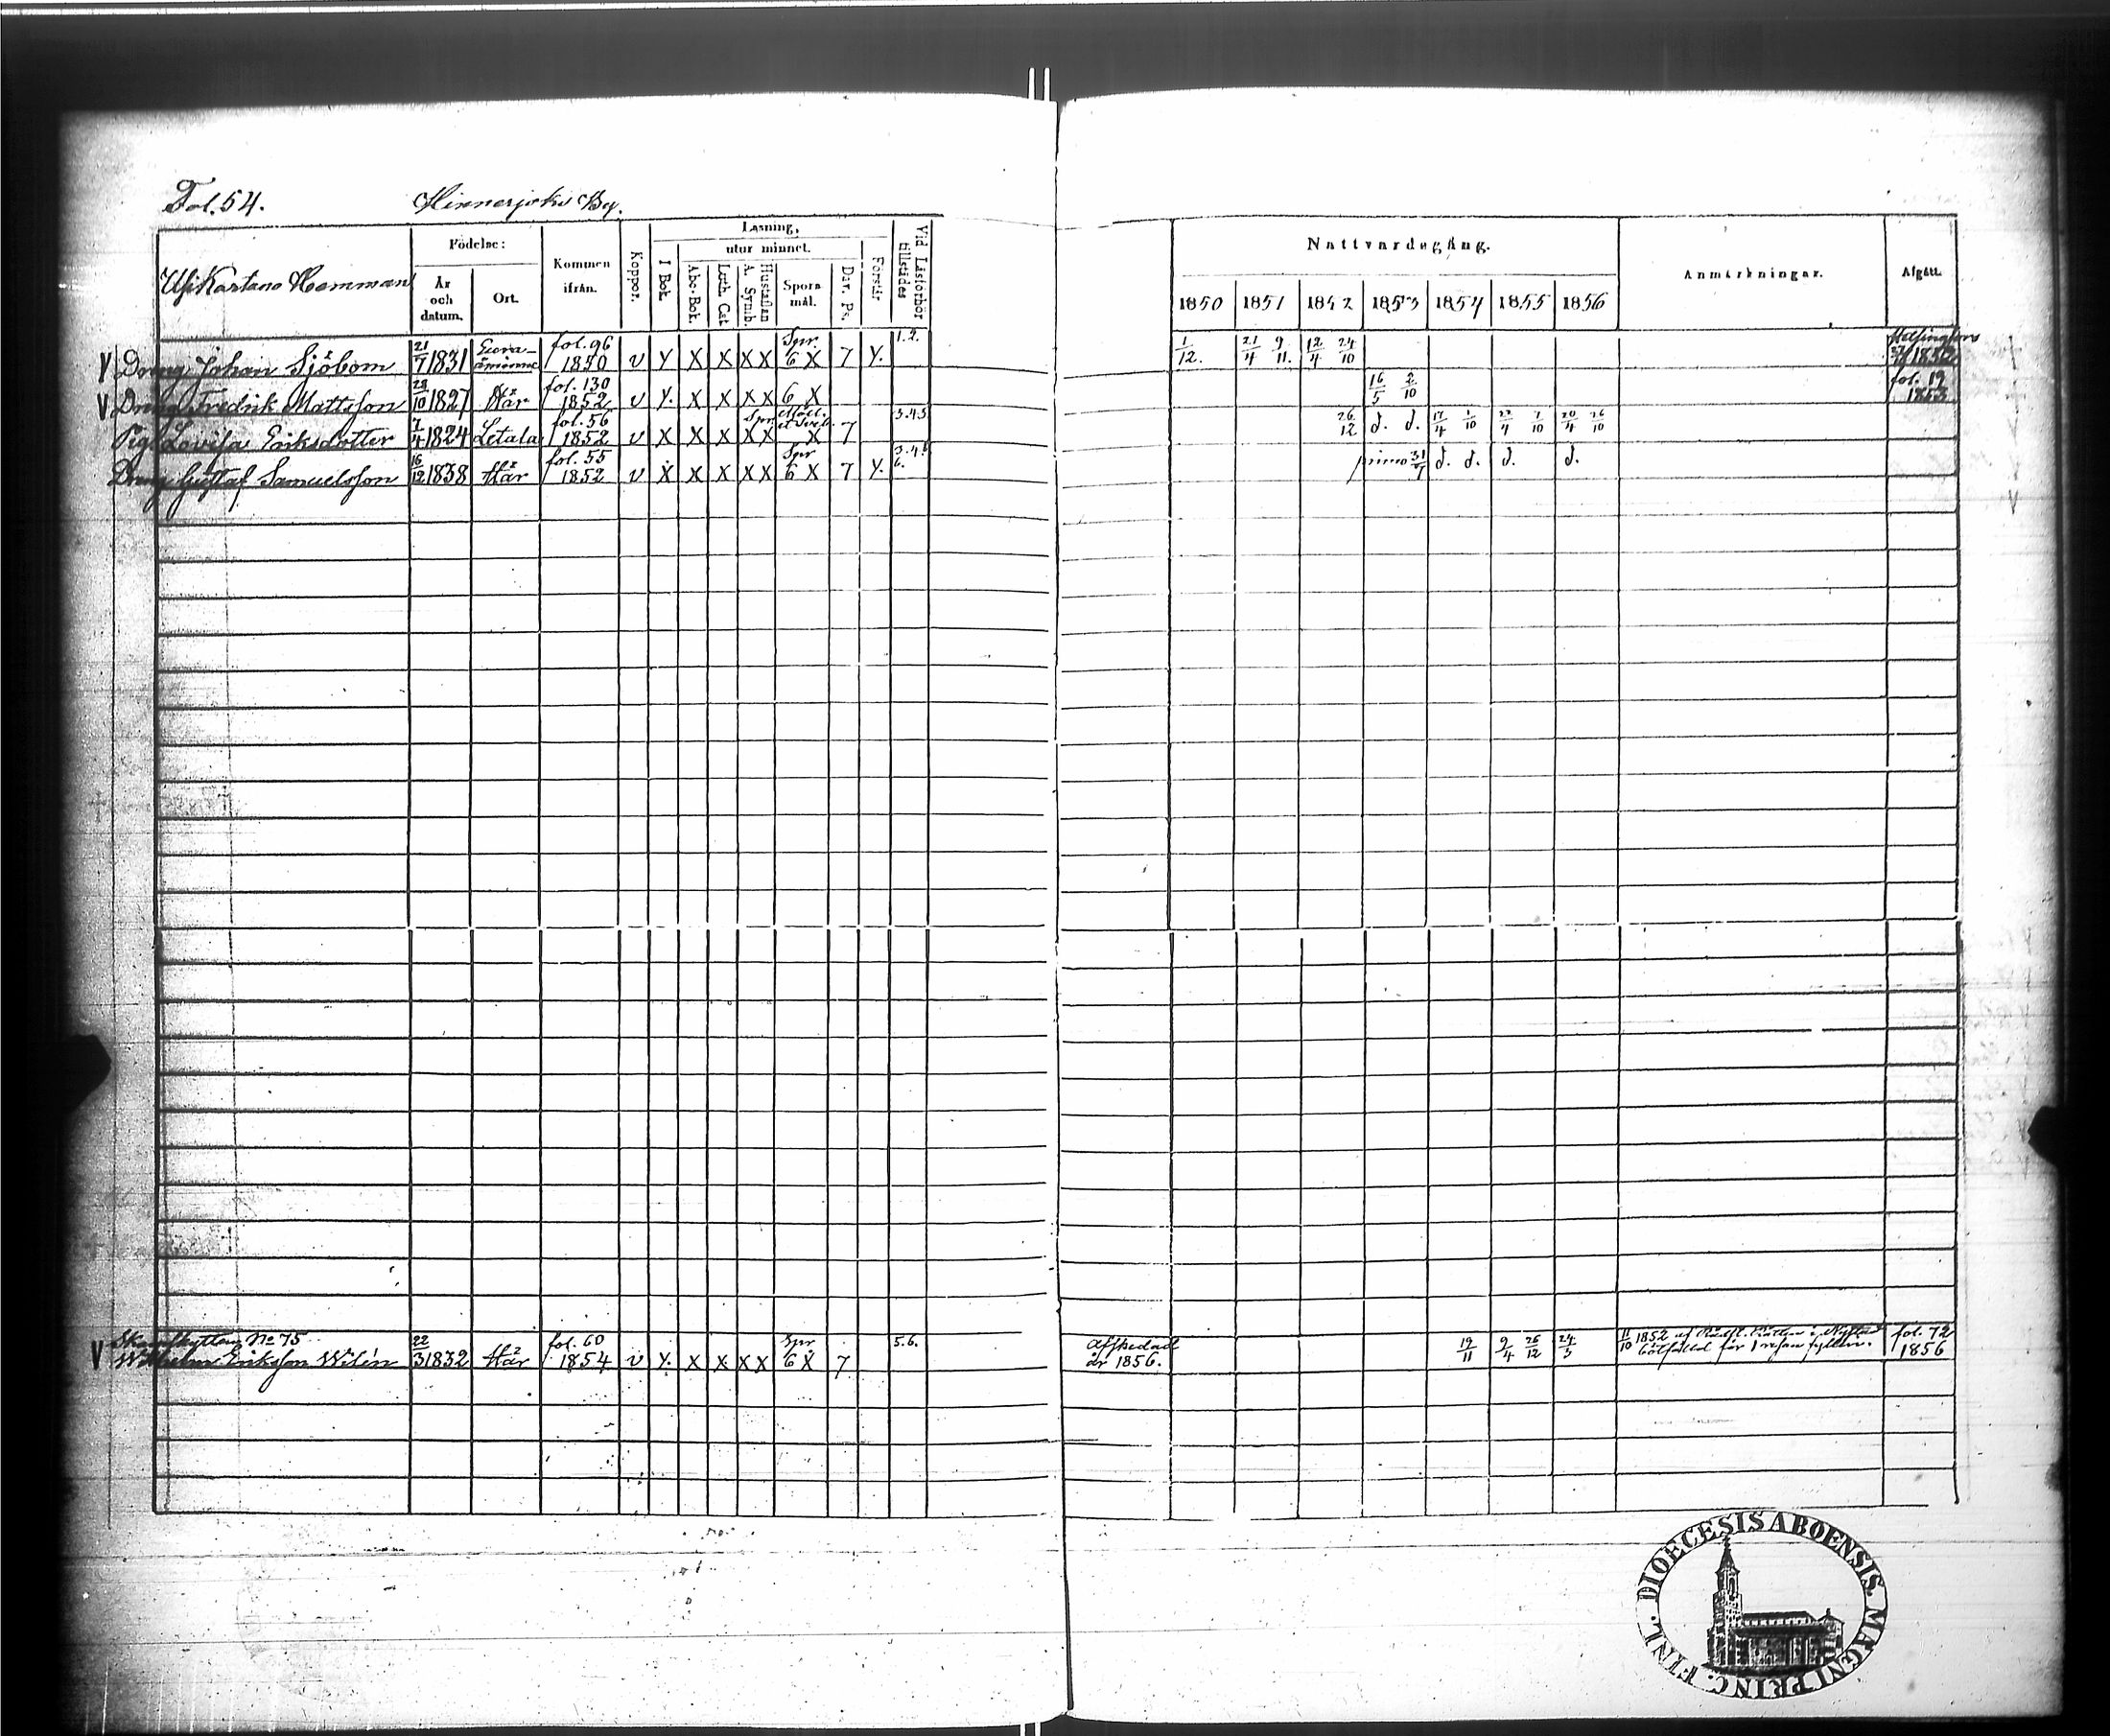 Fol. 54. Hinnerjoki By.
Läsning,
Födelse: utur minnet.
Kommen ifrån. Koppor. I Bok. Abc-Bok. Luth. Cat. Hustaflan A. Symb. Spörs mål. Dav. Ps. Förstår Vid Läsförhör tillstädes
Usikartano Hemman År och datum. Ort.
Nattvardsgång. Anmärkningar. Afgått.
1850 1851 1852 1853 1854 1855 1856
V Dreng Johan Sjöbom 21/7 1831 Eura-åminne fol. 96 1850 v Y X X X X Spr. 6 X 7 Y. 1.2. 1/12. 21/4 9/11. 12/4 24/10 Helsingfors 1852
V Dreng Fredrik Mattsson 28/10 1827 Här fol. 130 1852 v Y. X X X X 6 X 16/5 2/10 fol. 19 1853
Pig. Lovisa Eriksdotter 7/4 1824 Letala fol. 56 1852 v X X X X X X 7 3.4.5 26/12 d. d. 17/4 1/10 22/4 7/10 20/4 26/10
Dreng Gustaf Samuelsson 16/12 1838 Här fol. 55 1852 v X X X X X Spr 6 X 7 Y. 3.4.5 6. primo 31/7 d. d. d. d.
No 75
V Wilhelm Eriksson Wilén 22/3 1832 Här fol. 60 1854 v Y. X X X X Spr 6 X 7 5.6. Afskedad år 1856. 19/11 9/4 26/12 24/3 11/10 1852 af Rådst. Rätten i Nystad bötfälld för 1 resan fylleri. fol. 72 1856
FINL. DIOECESIS ABOENSIS. MAGNI PRINC.